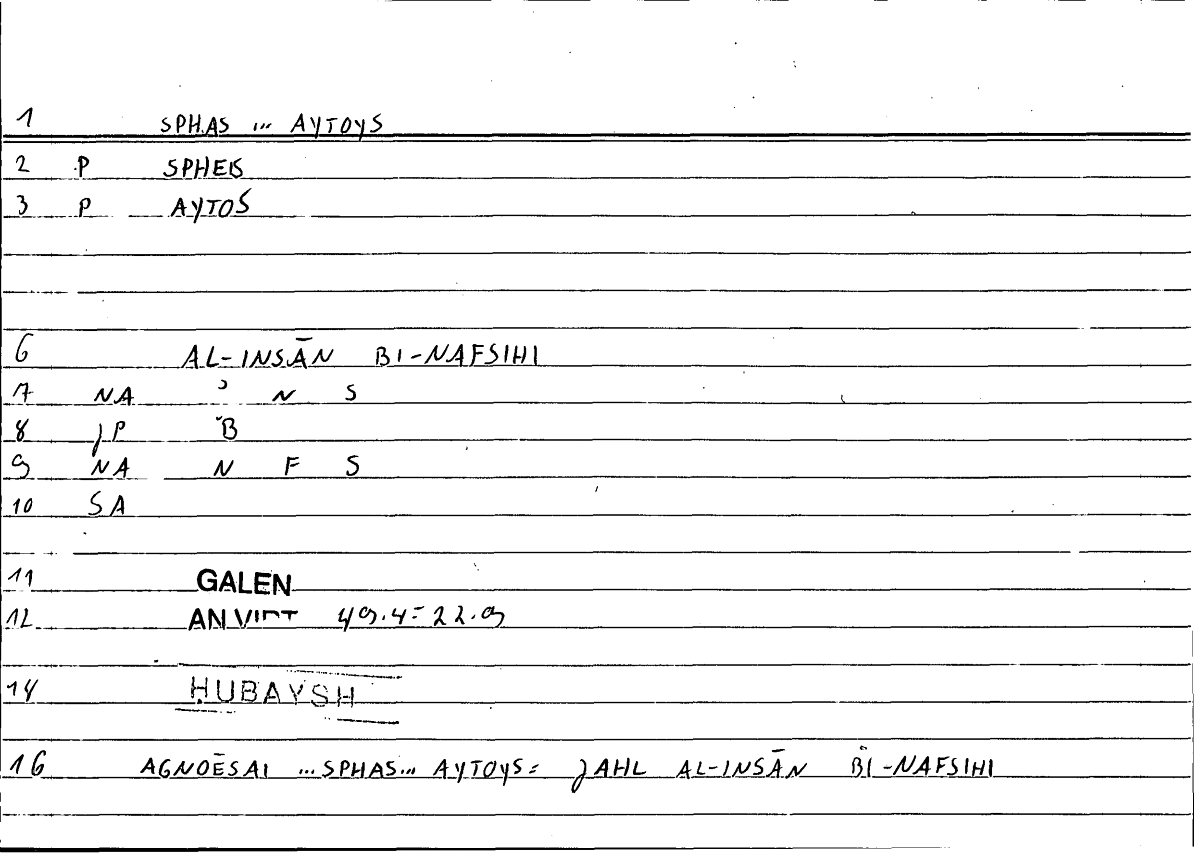 1 SPHAS ... AYTOYS
2 P SPHEIS
3 P AYTOS
6 AL-INSĀN BI-NAFSIHI
7 NA ʾ N S
8 JP B
9 NA N F S
10 SA
11 GALEN
12 AN VIRT 49.4=22.9
14 ḤUBAYSH
16 AGNOĒSAI ...SPHAS... AYTOYS= JAHL AL-INSĀN BI-NAFSIHI